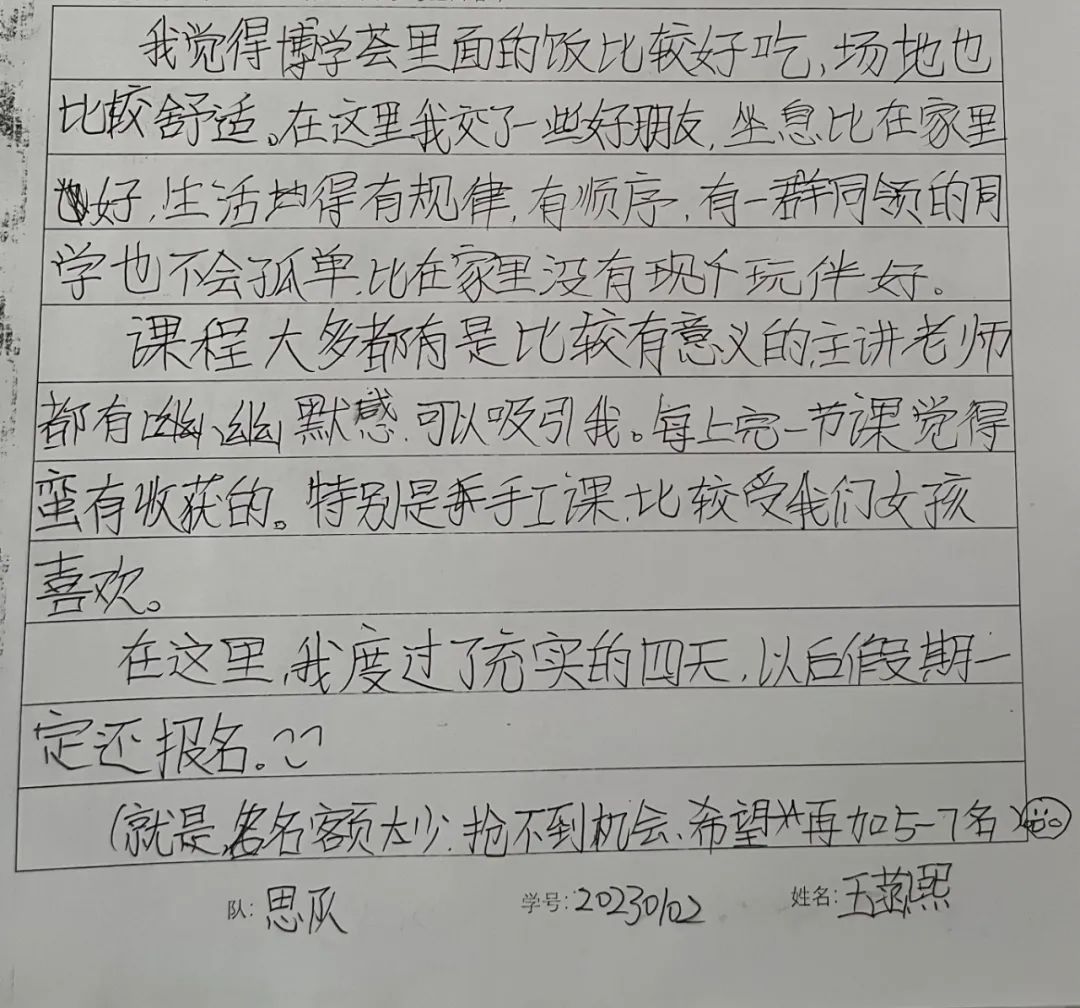 我觉得博学荟里面的饭比较好吃,场地也
比较舒适。在这里我交了一些好朋友,坐息比在家里
好,生活地得有规律,有顺序,有一群同领的同
学也不会孤单,比在家里没有现个玩伴好。
课程大多都有是比较有意义的,主讲老师
都有幽幽默感,可以吸引我。每上完一节课觉得
蛮有收获的。特别是手手工课,比较受我们女孩
喜欢。
在这里,我度过了充实的四天,以后假期一
定还报名。
(就是,名名额太少,抢不到机会、希望再加5-7名)
队:思队 学号:20230102 姓名:王熙